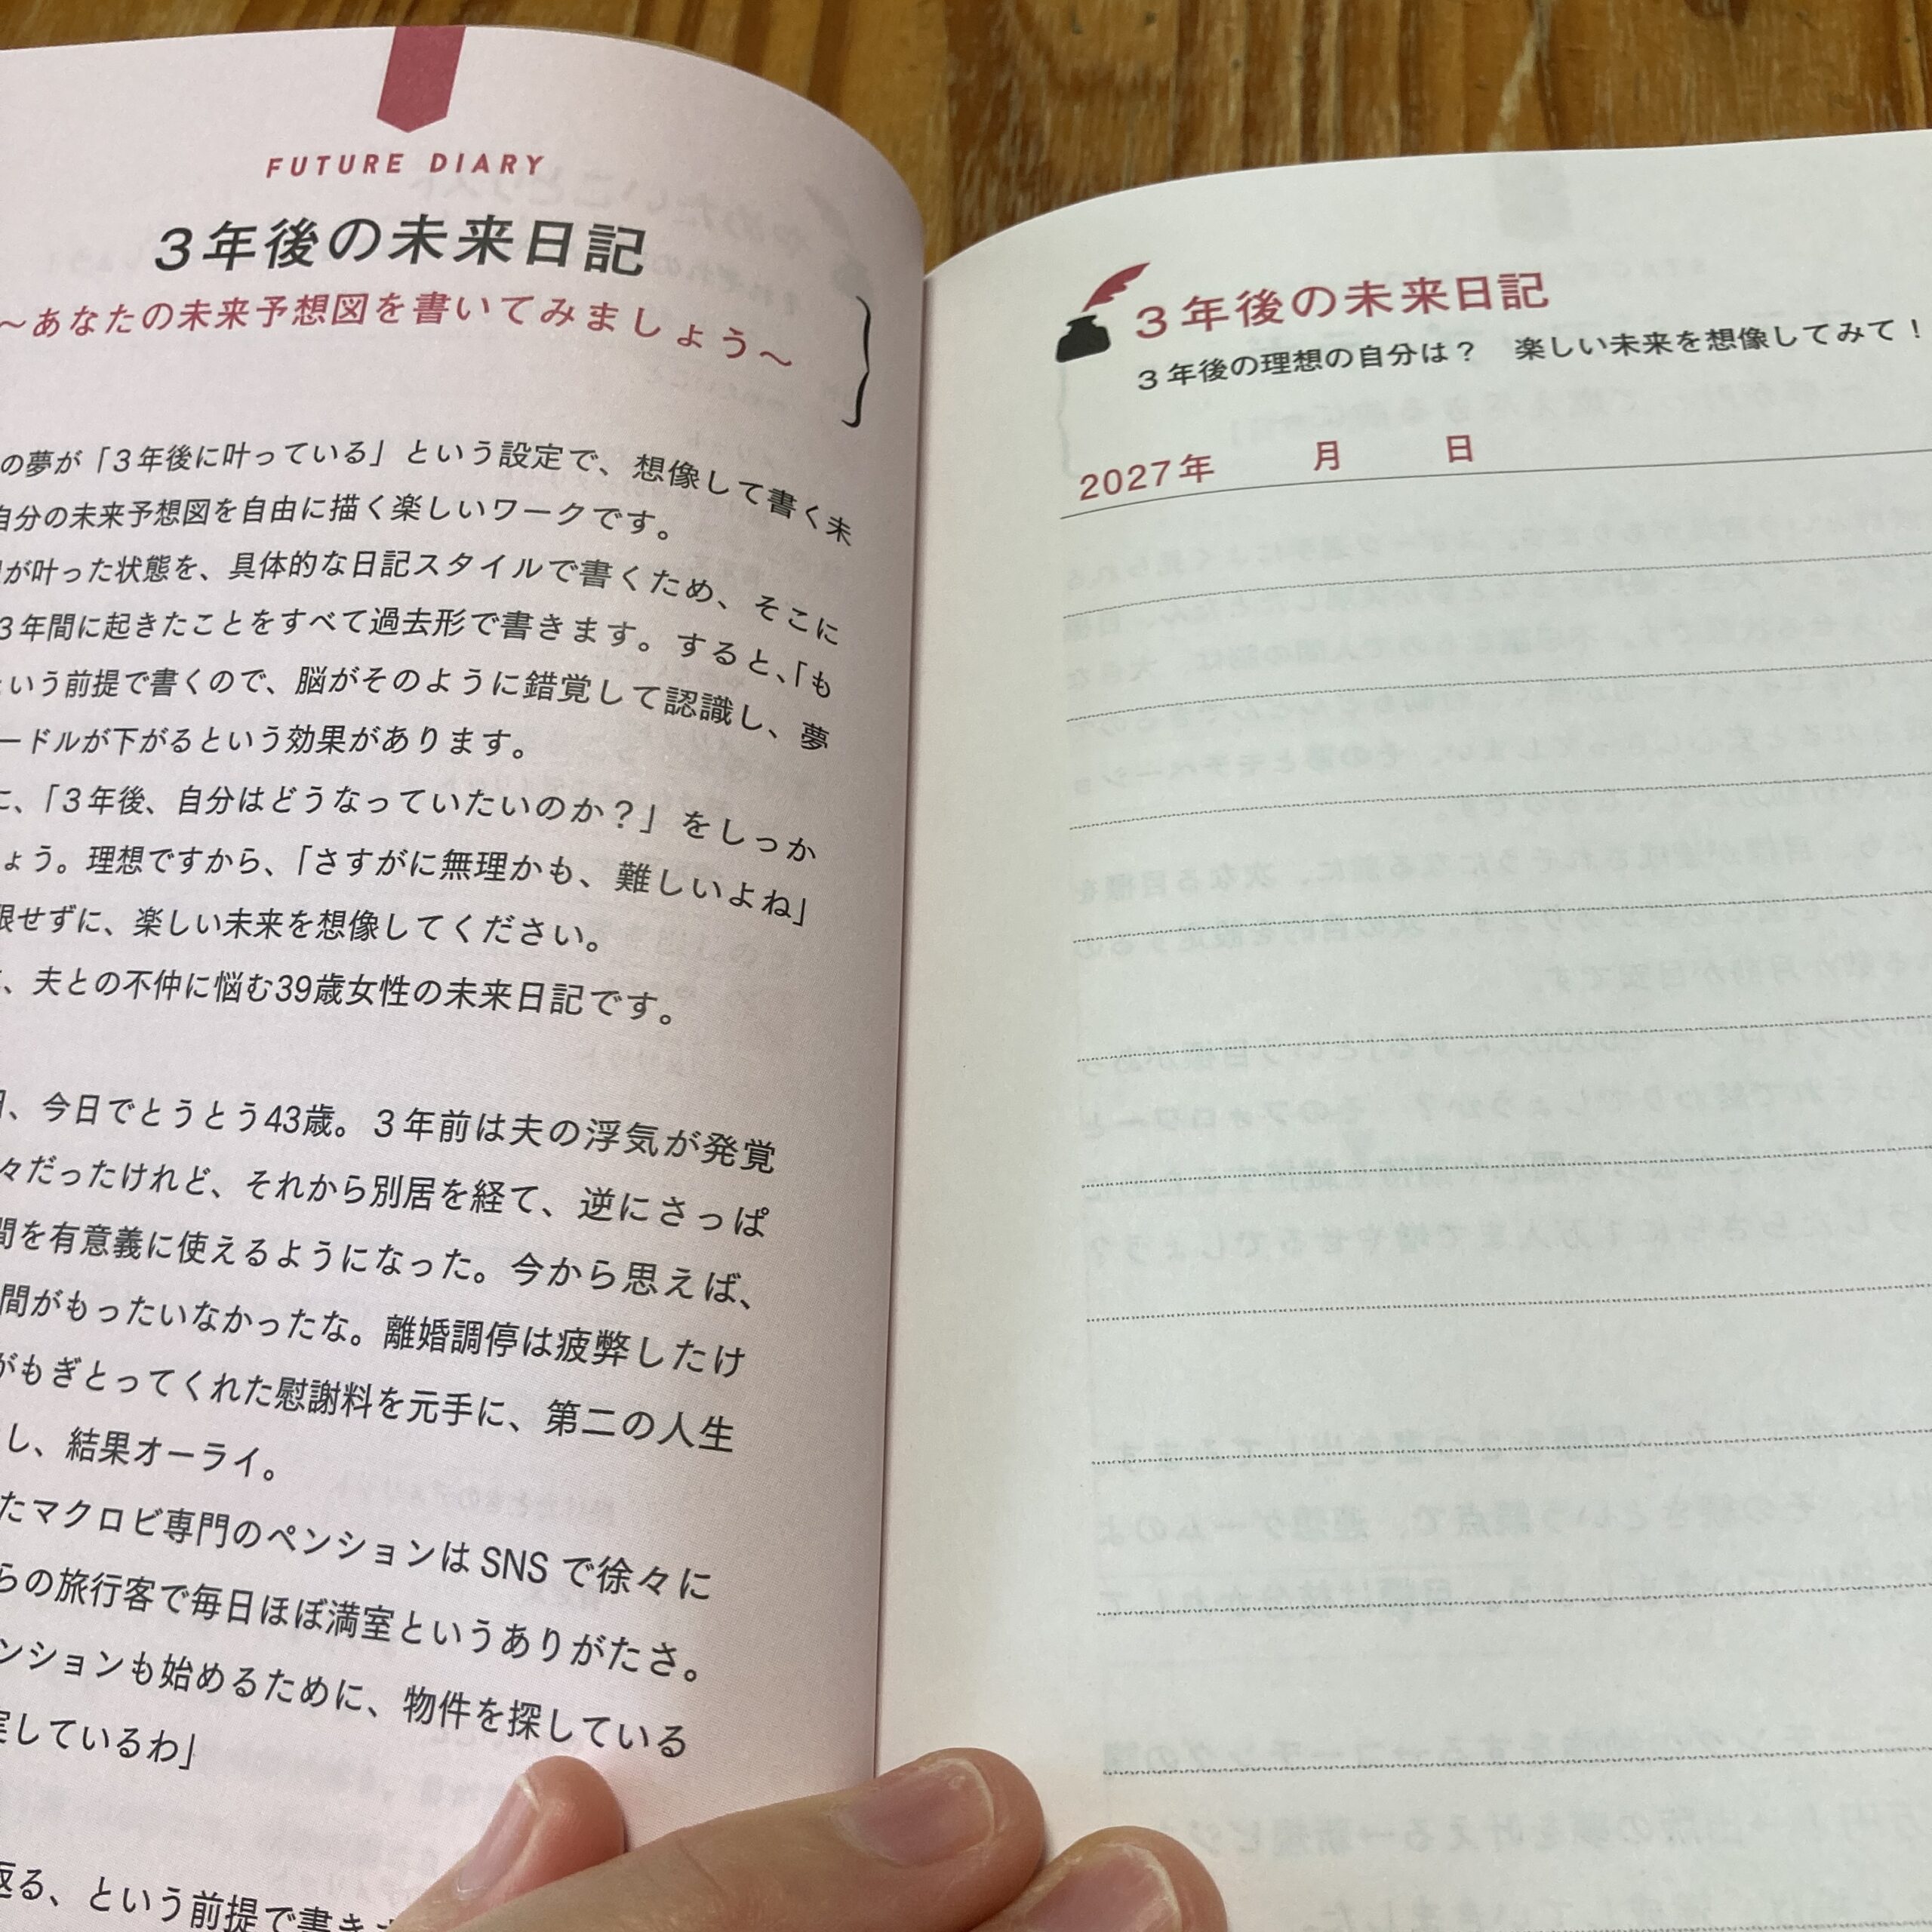 FUTURE DIARY
3年後の未来日記
〜あなたの未来予想図を書いてみましょう〜
の夢が「3年後に叶っている」という設定で、想像して書く未
自分の未来予想図を自由に描く楽しいワークです。
が叶った状態を、具体的な日記スタイルで書くため、そこに
3年間に起きたことをすべて過去形で書きます。すると、「も
いう前提で書くので、脳がそのように錯覚して認識し、夢
ードルが下がるという効果があります。
に、「3年後、自分はどうなっていたいのか?」をしっか
ょう。理想ですから、「さすがに無理かも、難しいよね」
限せずに、楽しい未来を想像してください。
、夫との不仲に悩む39歳女性の未来日記です。
、今日でとうとう43歳。3年前は夫の浮気が発覚
々だったけれど、それから別居を経て、逆にさっぱ
間を有意義に使えるようになった。今から思えば、
間がもったいなかったな。離婚調停は疲弊したけ
がもぎとってくれた慰謝料を元手に、第二の人生
し、結果オーライ。
たマクロビ専門のペンションはSNSで徐々に
らの旅行客で毎日ほぼ満室というありがたさ。
ンションも始めるために、物件を探している
実しているわ」
る、という前提で書き
3年後の未来日記
3年後の理想の自分は? 楽しい未来を想像してみて!
2027年 月 日